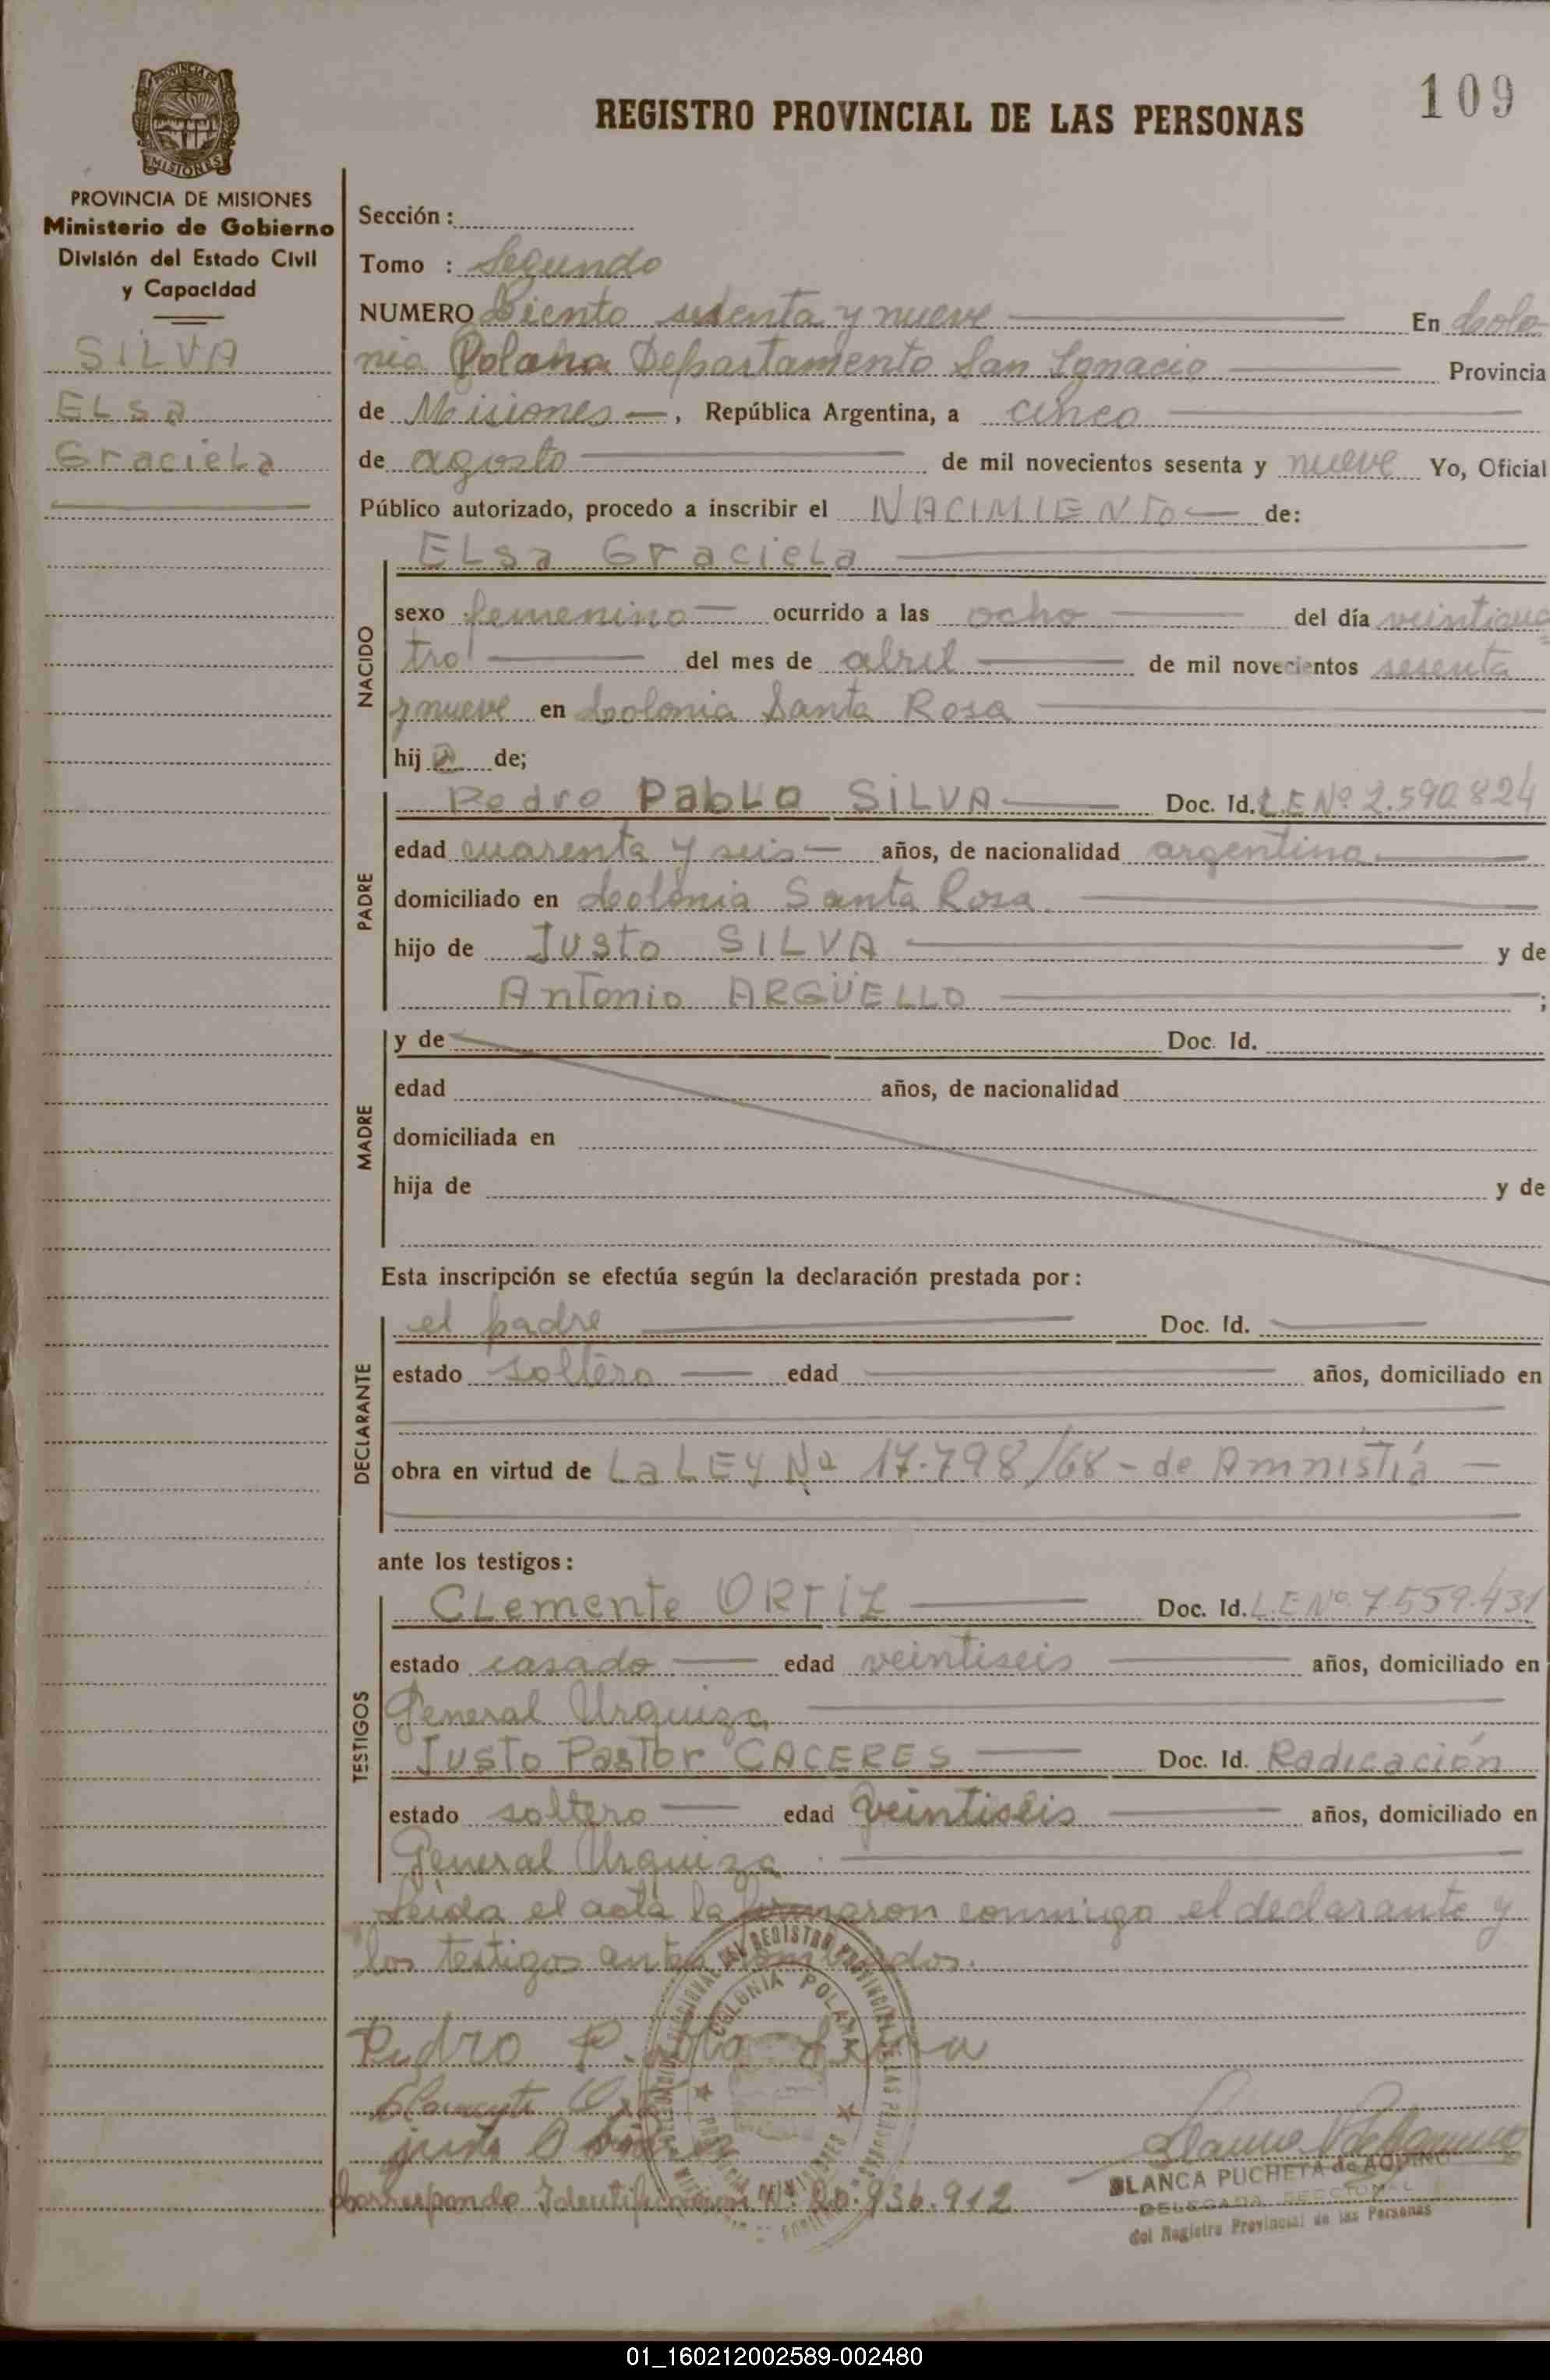 109
REGISTRO PROVINCIAL DE LAS PERSONAS
PROVINCIA DE MISIONES
Ministerio de Gobierno
División del Estado Civil
y Capacidad
SILVA
ELSa
GracieLa
Sección :
Tomo : Segundo
NUMERO Ciento setenta y nueve En Colo
nia Polana Departamento San Ignacio Provincia
de Misiones, República Argentina, a cinco
de agosto de mil novecientos sesenta y nueve Yo, Oficial
Público autorizado, procedo a inscribir el NACIMIENTO de:
NACIDO
ELSa GracieLa
sexo femenino ocurrido a las ocho del día veinticua
tro del mes de abril de mil novecientos sesenta
y nueve en Colonia Santa Rosa
hij a de;
PADRE
Pedro PabLo SILVA Doc. Id. L.E Nº 2.590.824
edad cuarenta y seis años, de nacionalidad argentina
domiciliado en Colonia Santa Rosa
hijo de Justo SILVA y de
Antonia ARGÜELLO ;
MADRE
y de Doc. Id.
edad años, de nacionalidad
domiciliada en
hija de y de
Esta inscripción se efectúa según la declaración prestada por :
DECLARANTE
el padre Doc. Id.
estado soltero edad años, domiciliado en
obra en virtud de La LEY Nº 17.798/68 - de Amnistía
ante los testigos :
TESTIGOS
CLemente ORTIZ Doc. Id. L.E Nº 7.559.431
estado casado edad veintiseis años, domiciliado en
General Urquiza
Justo Pastor CACERES Doc. Id. Radicación
estado soltero edad veintiseis años, domiciliado en
General Urquiza
Leida el acta la firmaron conmigo el declarante y
los testigos antes nombrados.
Pedro P. Silva
COLONIA POLANA
Corresponde Identificación Nº 20.936.912
BLANCA PUCHETA de AQUINO
DELEGADA SECCIONAL
del Registro Provincial de las Personas
01_160212002589-002480